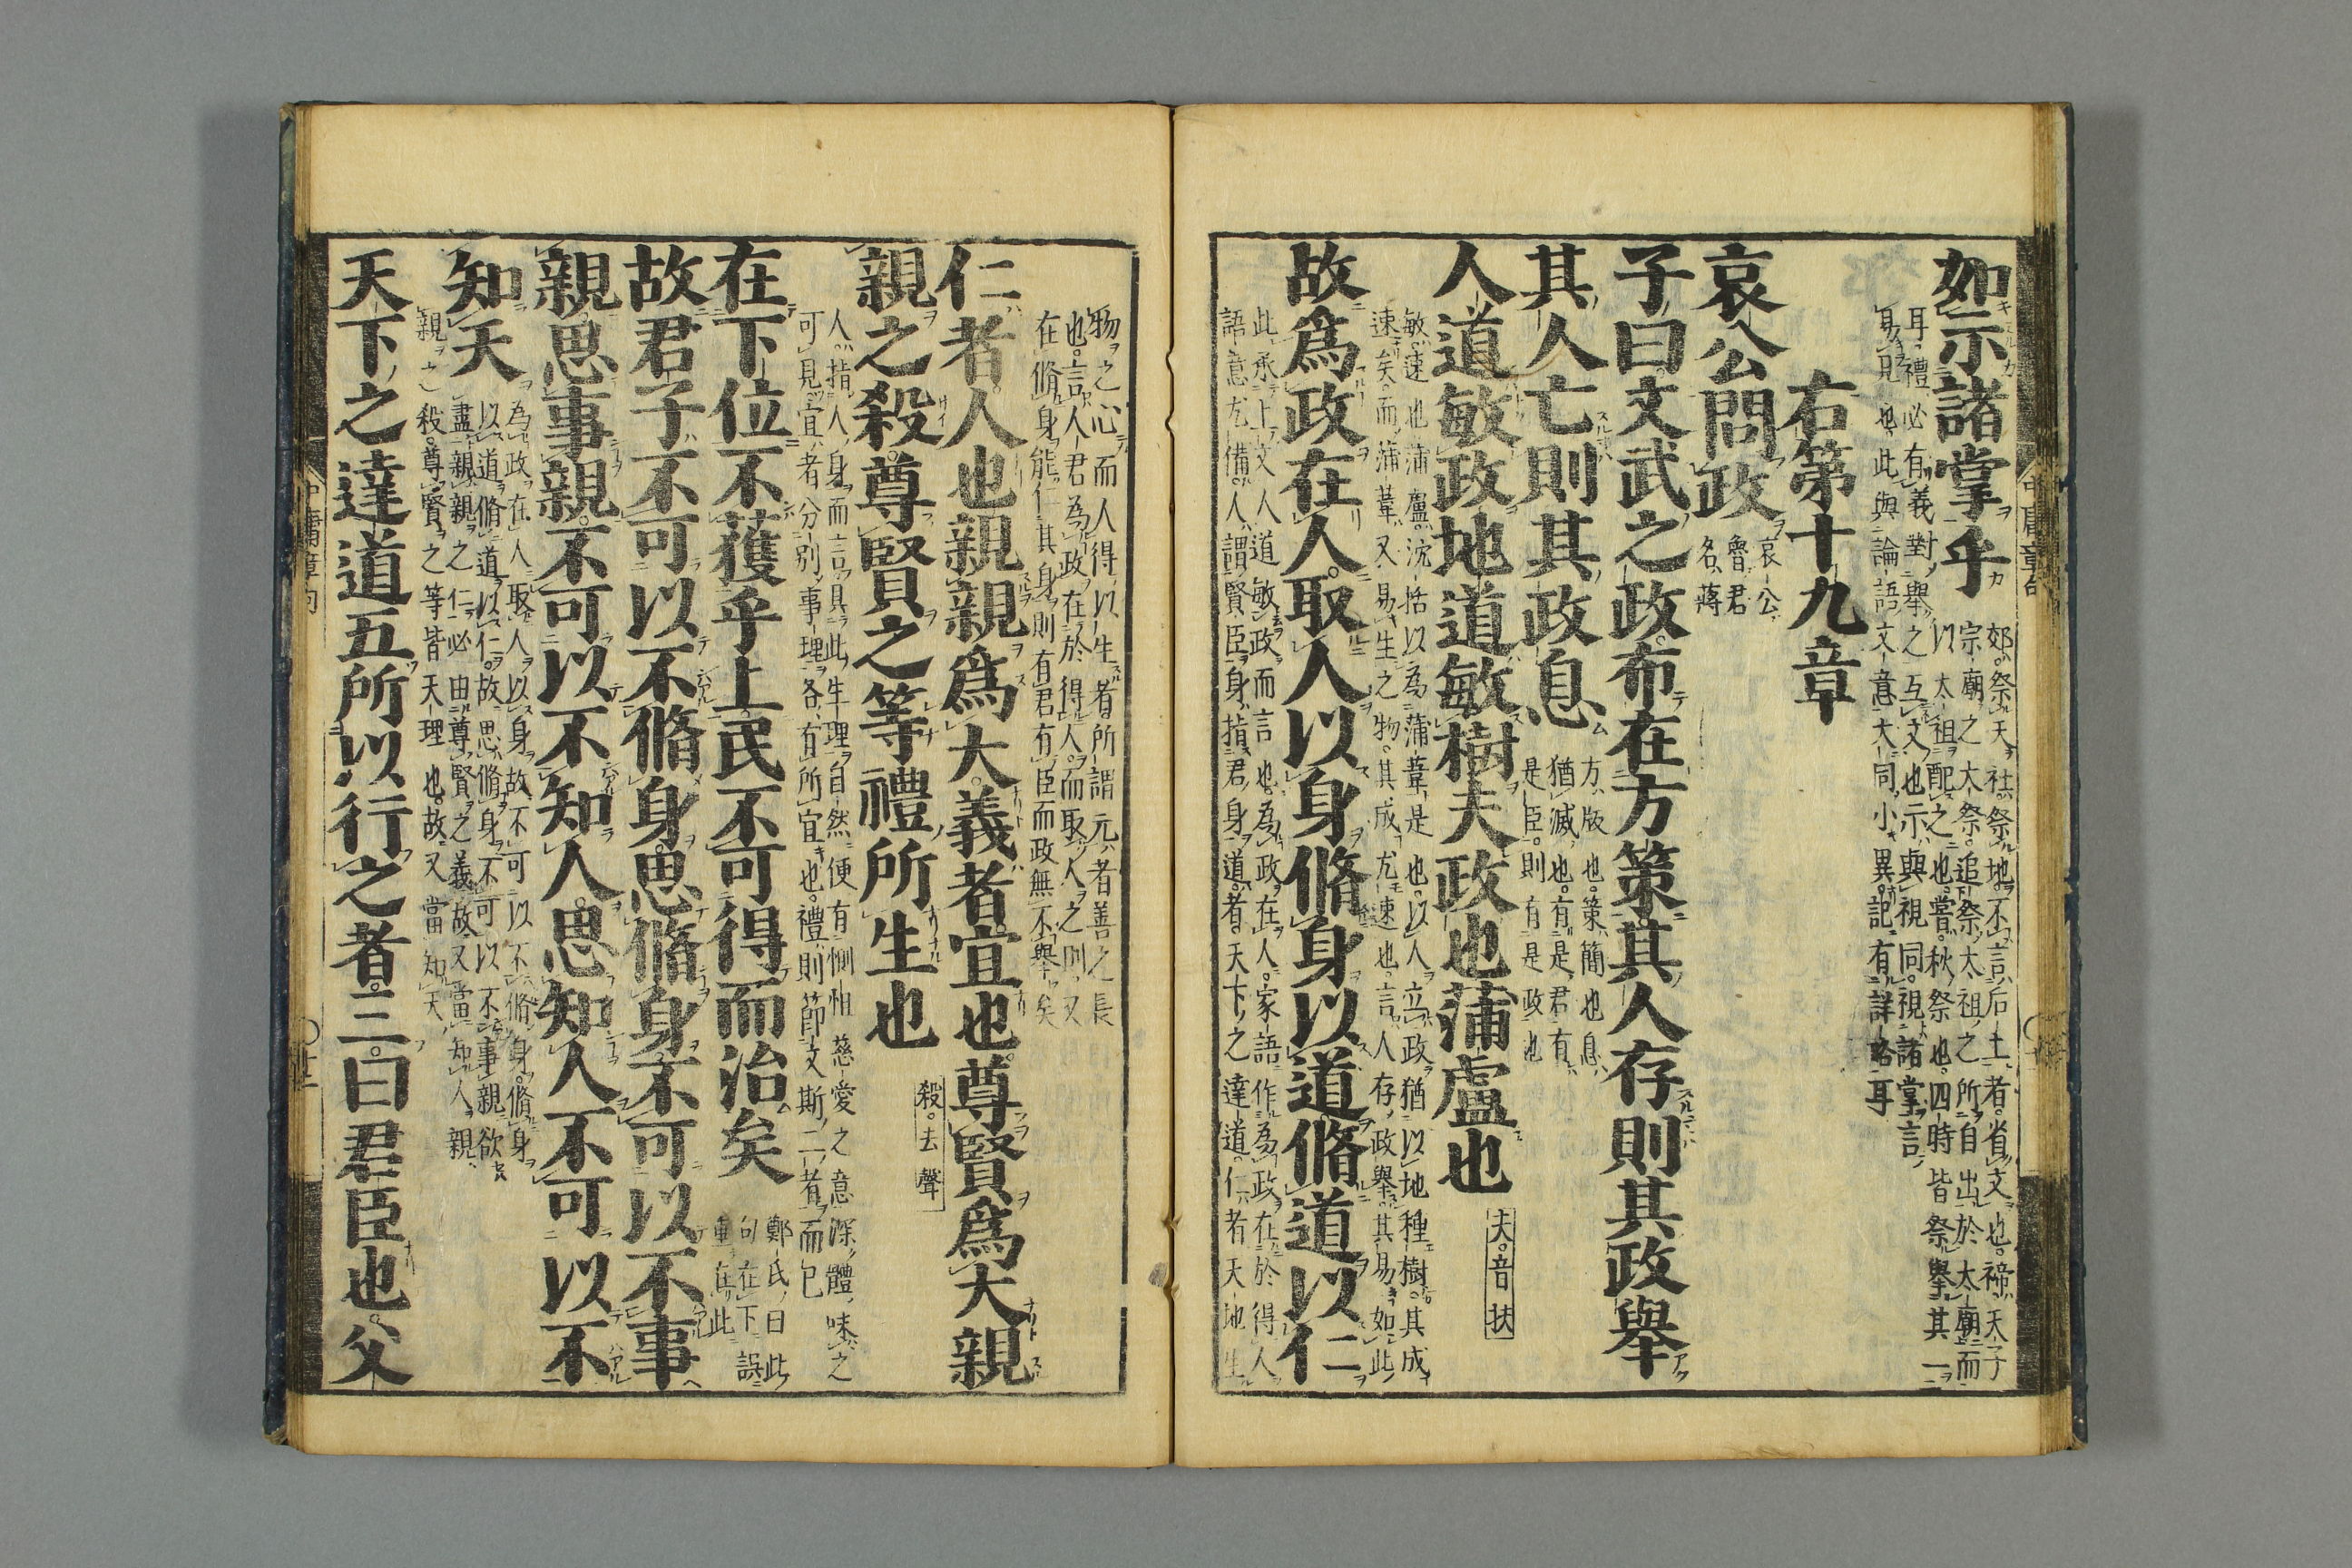 如示諸掌乎
郊。祭天。社。祭地。不言后土者。省文也。禘。天子
宗廟之大祭。追祭太祖之所自出於太廟。而
以太祖配之也。嘗。秋祭也。四時皆祭。舉其一
耳。禮必有義。對舉之。互文也。示。與視同。視諸掌。言
易見也。此與論語文意大同小異。記有詳略耳
右第十九章
哀公問政
哀公。
魯君。
名蔣
子曰文武之政。布在方策其人存則其政舉
其人亡則其政息
方。版也。策。簡也。息。
猶滅也。有是君。有
是臣。則有是政也
人道敏政地道敏樹夫政也蒲盧也
夫。音扶
敏。速也。蒲盧。沈括以為蒲葦。是也。以人立政。猶以地種樹。其成
速矣。而蒲葦又易生之物。其成尤速也。言人存政舉。其易如此
故爲政在人。取人以身脩身以道脩道以仁
此承上文人道敏政而言也。為政在人。家語作為政在於得人。
語意尤備。人。謂賢臣。身。指君身。道者。天下之達道。仁者。天地生
物之心。而人得以生者。所謂元者善之長
也。言人君為政在於得人。而取人之則。又
在脩身。能仁其身。則有君有臣。而政無不舉矣
仁者人也親親爲大。義者宜也。尊賢爲大親
親之殺。尊賢之等禮所生也
殺。去聲
人。指人身而言。具此生理。自然便有惻怛慈愛之意。深體味之
可見。宜者。分別事理。各有所宜也。禮。則節文斯二者而已
在下位不獲乎上民不可得而治矣
鄭氏曰此
句在下誤
重在此
故君子不可以不脩身。思脩身不可以不事
親。思事親。不可以不知人。思知人不可以不
知天
為政在人。取人以身。故不可以不脩身。脩身
以道。脩道以仁。故思脩身。不可以不事親。欲
盡親親之仁。必由尊賢之義。故又當知人。親
親之殺。尊賢之等。皆天理也。故又當知天
天下之達道五所以行之者。三。曰君臣也。父
中庸章句
中庸章句